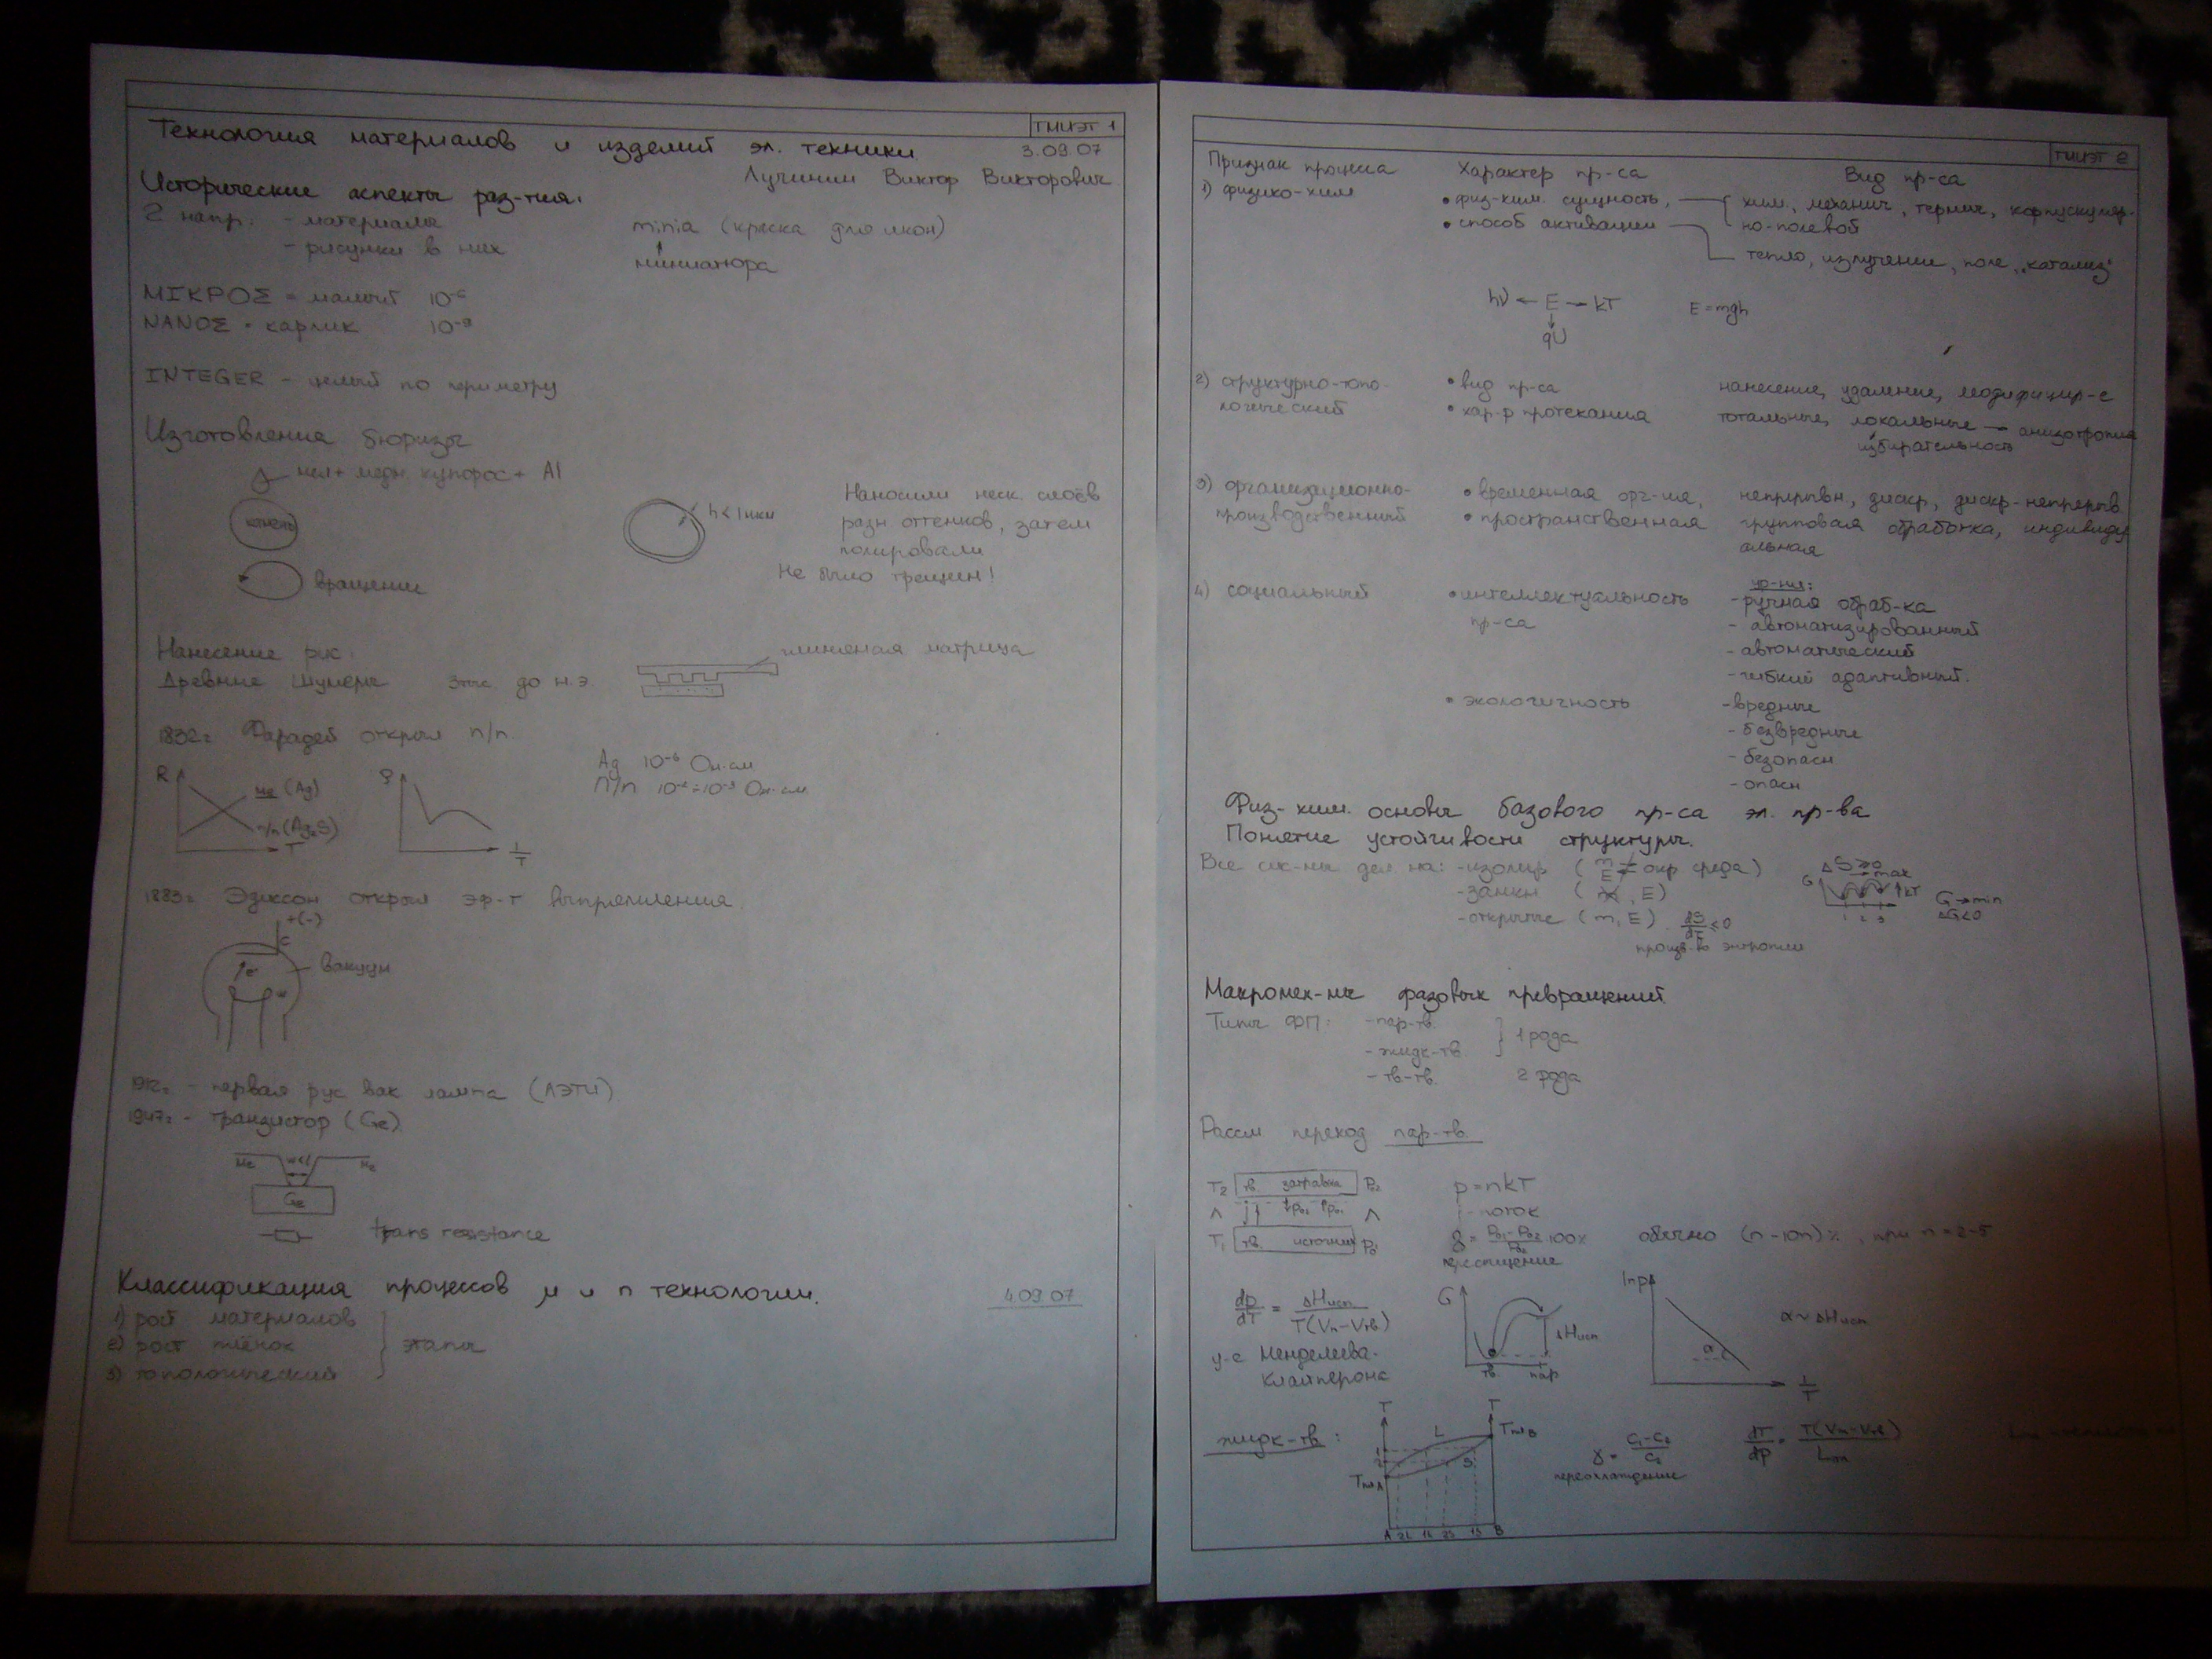 ТМИЭТ 1
Технология материалов и изделий эл. техники
3.09.07
Лучинин Виктор Викторович
Исторические аспекты раз-тия.
2 напр.: - материалы
- рисунки в них
minia (краска для икон)
миниатюра
ΜΙΚΡΟΣ = малый 10⁻⁶
NANOΣ = карлик 10⁻⁹
INTEGER - целый по периметру
Изготовления бюризы
мел + медн. купорос + Al
камень
вращение
h<1мкм
Наносили неск. слоёв
разн оттенков, затем
полировали
Не было трещин!
Нанесение рис.
Древние Шумеры 3тыс. до н.э.
глиняная матрица
1832г Фарадей открыл п/п.
R
Me (Ag)
п/п (Ag₂S)
T
ρ
1/T
Ag 10⁻⁶ Ом·см
П/п 10⁻²÷10⁻³ Ом·см
1883г. Эдиссон открыл эф-т выпрямления.
+(-)
C
e
вакуум
1912г. - первая рус вак лампа (ЛЭТИ)
1947г - транзистор (Ge).
Me
Me
Ge
trans resistance
Классификация процессов μ и n технологии.
4.09.07
1) рост материалов
2) рост плёнок
3) топологический
этапы
ТМИЭТ 2
Признак процесса Характер пр-са Вид пр-са
1) физико-хим
• физ-хим. сущность, хим., механич, термич, корпускуляр-
но-полевой
• способ активации
тепло, излучение, поле, "катализ"
hν ← E → kT E = mgh
qU
2) структурно-топо-
логический
• вид пр-са нанесение, удаление, модифицир-е
• хар-р протекания тотальные, локальные → анизотропия
избирательность
3) организационно-
производственный
• временная орг-ия, непрерывн, дискр, дискр-непрерыв.
• пространственная групповая обработка, индивиду
альная
4) социальный
• интеллектуальность
пр-са
ур-ния:
- ручная обраб-ка
- автоматизированный
- автоматический
- гибкий адаптивный.
• экологичность
- вредные
- безвредные
- безопасн
- опасн
Физ-хим. основы базового пр-са эл. пр-ва
Понятие устойчивости структуры.
Все сис-мы дел. на: - изолир (m E ≠ окр среда)
- замкн (m, E)
- открытые (m, E) dS/dT ≤ 0
произв-во энтропии
ΔS≥0
→ max
G
↑kT
1 2 3
G→min
ΔG<0
Макромех-мы фазовых превращений
Типы ФП: - пар-тв.
- жидк-тв.
1 рода
- тв-тв. 2 рода
Рассм переход пар-тв.
T₂ тв. затравка P₀₂
Λ j Λ
T₁ тв. источник P₀₁
p = nkT
j - поток
γ = (P₀₁-P₀₂)/P₀₂ · 100%
пересыщение
обычно (n-10n)%, при n=2-5
dp/dT = ΔHисп / T(Vп-Vтв.)
у-е Менделеева-
Клайперона
G
ΔHисп
тв пар
lnp
α
1/T
α~ΔHисп
жидк-тв:
T T
L
S
1
2
Tпл B
Tпл A
A 2L 1L 2S 1S B
γ = (C₁-C₂)/C₂
переохлаждение
dT/dp = T(Vж-Vтв)/Lпл